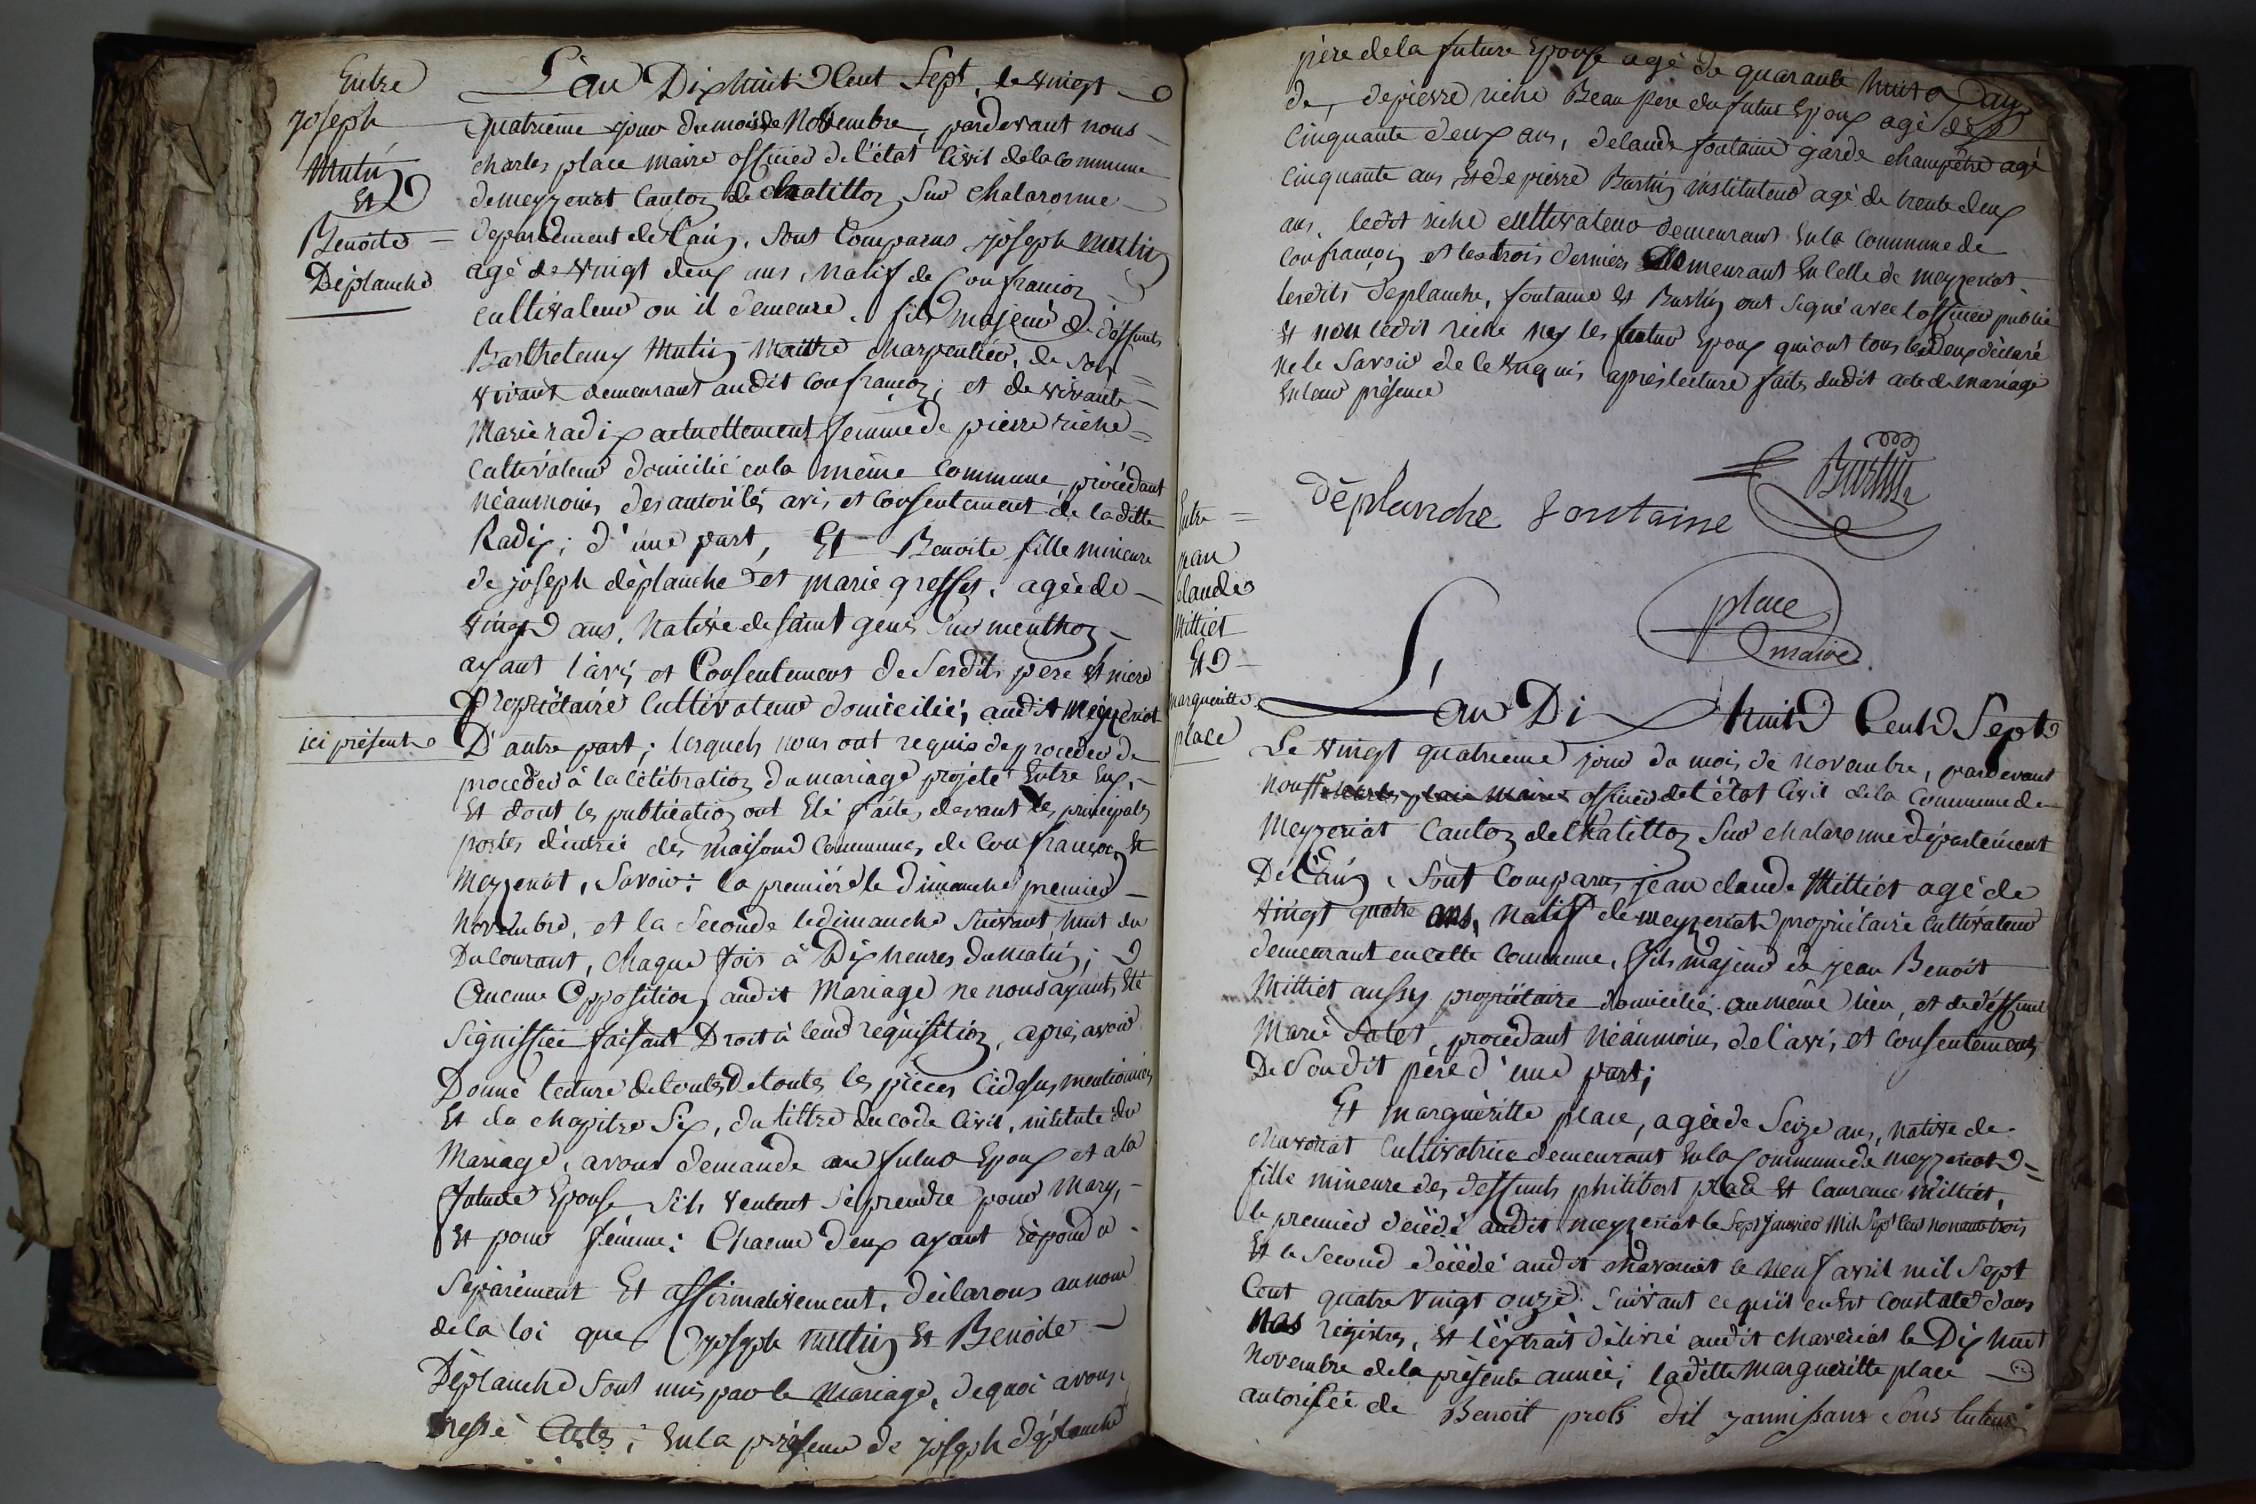 Entre
joseph
Mutin
Et
Benoite
Déplanche
L'an Dix huit Cent Sept, le vingt
quatrieme jour du mois de Novembre, pardevant nous
charles place maire officier de l'état Civil de la commune
de mezzeriat Canton de Chatillon Sur chalaronne
département de L'ain, Sont Comparus joseph mutin
agé de vingt deux ans, Natif de Confrançon
cultivateur ou il demeure. fils majeur de déffunts
Barthelemy Mutin Maitre charpentier, de son
vivant demeurant audit confrançon; et de vivante
Marie radix actuellement femme de pierre riche
Cultivateur domicilié en la même commune, procédant
néanmoins des autorités avis et consentement de la ditte
Radix; d'une part, Et Benoite fille mineure
de joseph déplanche et marie greffet, agée de
vingt ans, Native de saint genis sur menthon
ayant l'avis et Consentement de Sesdits pere et mere
Propriétaire Cultivateur domicilié, audit Mezzeriat
ici présente
D'autre part; lesquels nous ont requis de procéder de
procéder à la célébration du mariage projeté Entre Eux
Et dont les publication ont Eté faites devant les principales
portes d'entrée des maisons Communes de Confrançon et
Mezzeriat, Savoir: la première le dimanche premier
Novembre, et la Seconde le dimanche Suivant huit du
Du Courant, Chaque fois à Dix heures du matin;
Aucune Opposition audit Mariage ne nous ayant, Eté
Signiffiée faisant Droit à leur réquisition, après avoir
Donné lecture de toutes De toutes les pièces Cidesus mentionnées
Et du chapitre Six, du tittre du code Civil, intitulé du
Mariage, avons demandé au futur Epoux et a la
future Epouse s'ils veulent se prendre pour Mary,
Et pour fémme: Chacun d'eux ayant répondu
Séparément Et affirmativement, déclarons au nom
de la loi que joseph mutin Et Benoite
Déplanche Sont unis par le Mariage, de quoi avons
dressé Acte; En la présence de joseph déplanche
père de la future Epouse agé de quarante huit ans
de, de pierre riche Beau pere du futur Epoux agé de
Cinquante deux ans, de Claude fontaine garde champêtre agé
Cinquante ans, Et de pierre Burtin instituteur agé de trente deux
ans. ledit riche cultivateur demeurant En la Commune de
confrançon et les trois derniers demeurant En Celle de mezzeriat.
lesdits déplanche, fontaine et Burtin ont signé avec l'officier public
et non ledit riche ny les futur Epoux qui ont tous les Deux déclaré
ne le Savoir de ce Enquis, après lecture faite dudit acte de mariage
En leur présence
déplanche fontaine Burtin
place
maire
Entre
jean
claude
Milliet
Et
marguerittes
place
L'an Dix huit Cent Sept
Le vingt quatrieme jour du mois de novembre, pardevant
nous charles place maire officier de l'état Civil de la Commune de
Mezzeriat Canton de Chatillon Sur chalaronne département
De L'ain, Sont Comparus jean claude Milliet agé de
vingt quatre ans, natif de mezzeriat propriétaire Cultivateur
demeurant en cette Commune, fils majeur de jean Benoit
Milliet aussy propriétaire domicilié au même lieu, et de déffunte
Marie , procédant néanmoins de l'avis et Consentement
De Son dit père d'une part;
Et marguéritte place, agée de Seize ans, native de
chaveriat Cultivatrice demeurant En la Commune de mezzeriat
fille mineure des deffunts philibert place Et laurence milliet,
le premier décédé audit mezzeriat le Sept janvier Mil Sept Cent nonante trois
Et le Second décédé audit chaveriat le neuf avril mil Sept
Cent quatre vingt onze. Suivant ce qu'il en Est Constaté dans
Nos régistres, et l'éxtrait délivré audit chavériat le Dix huit
Novembre de la présente année; la ditte Marguéritte place
autorisée de Benoit prols dit Sous tuteur